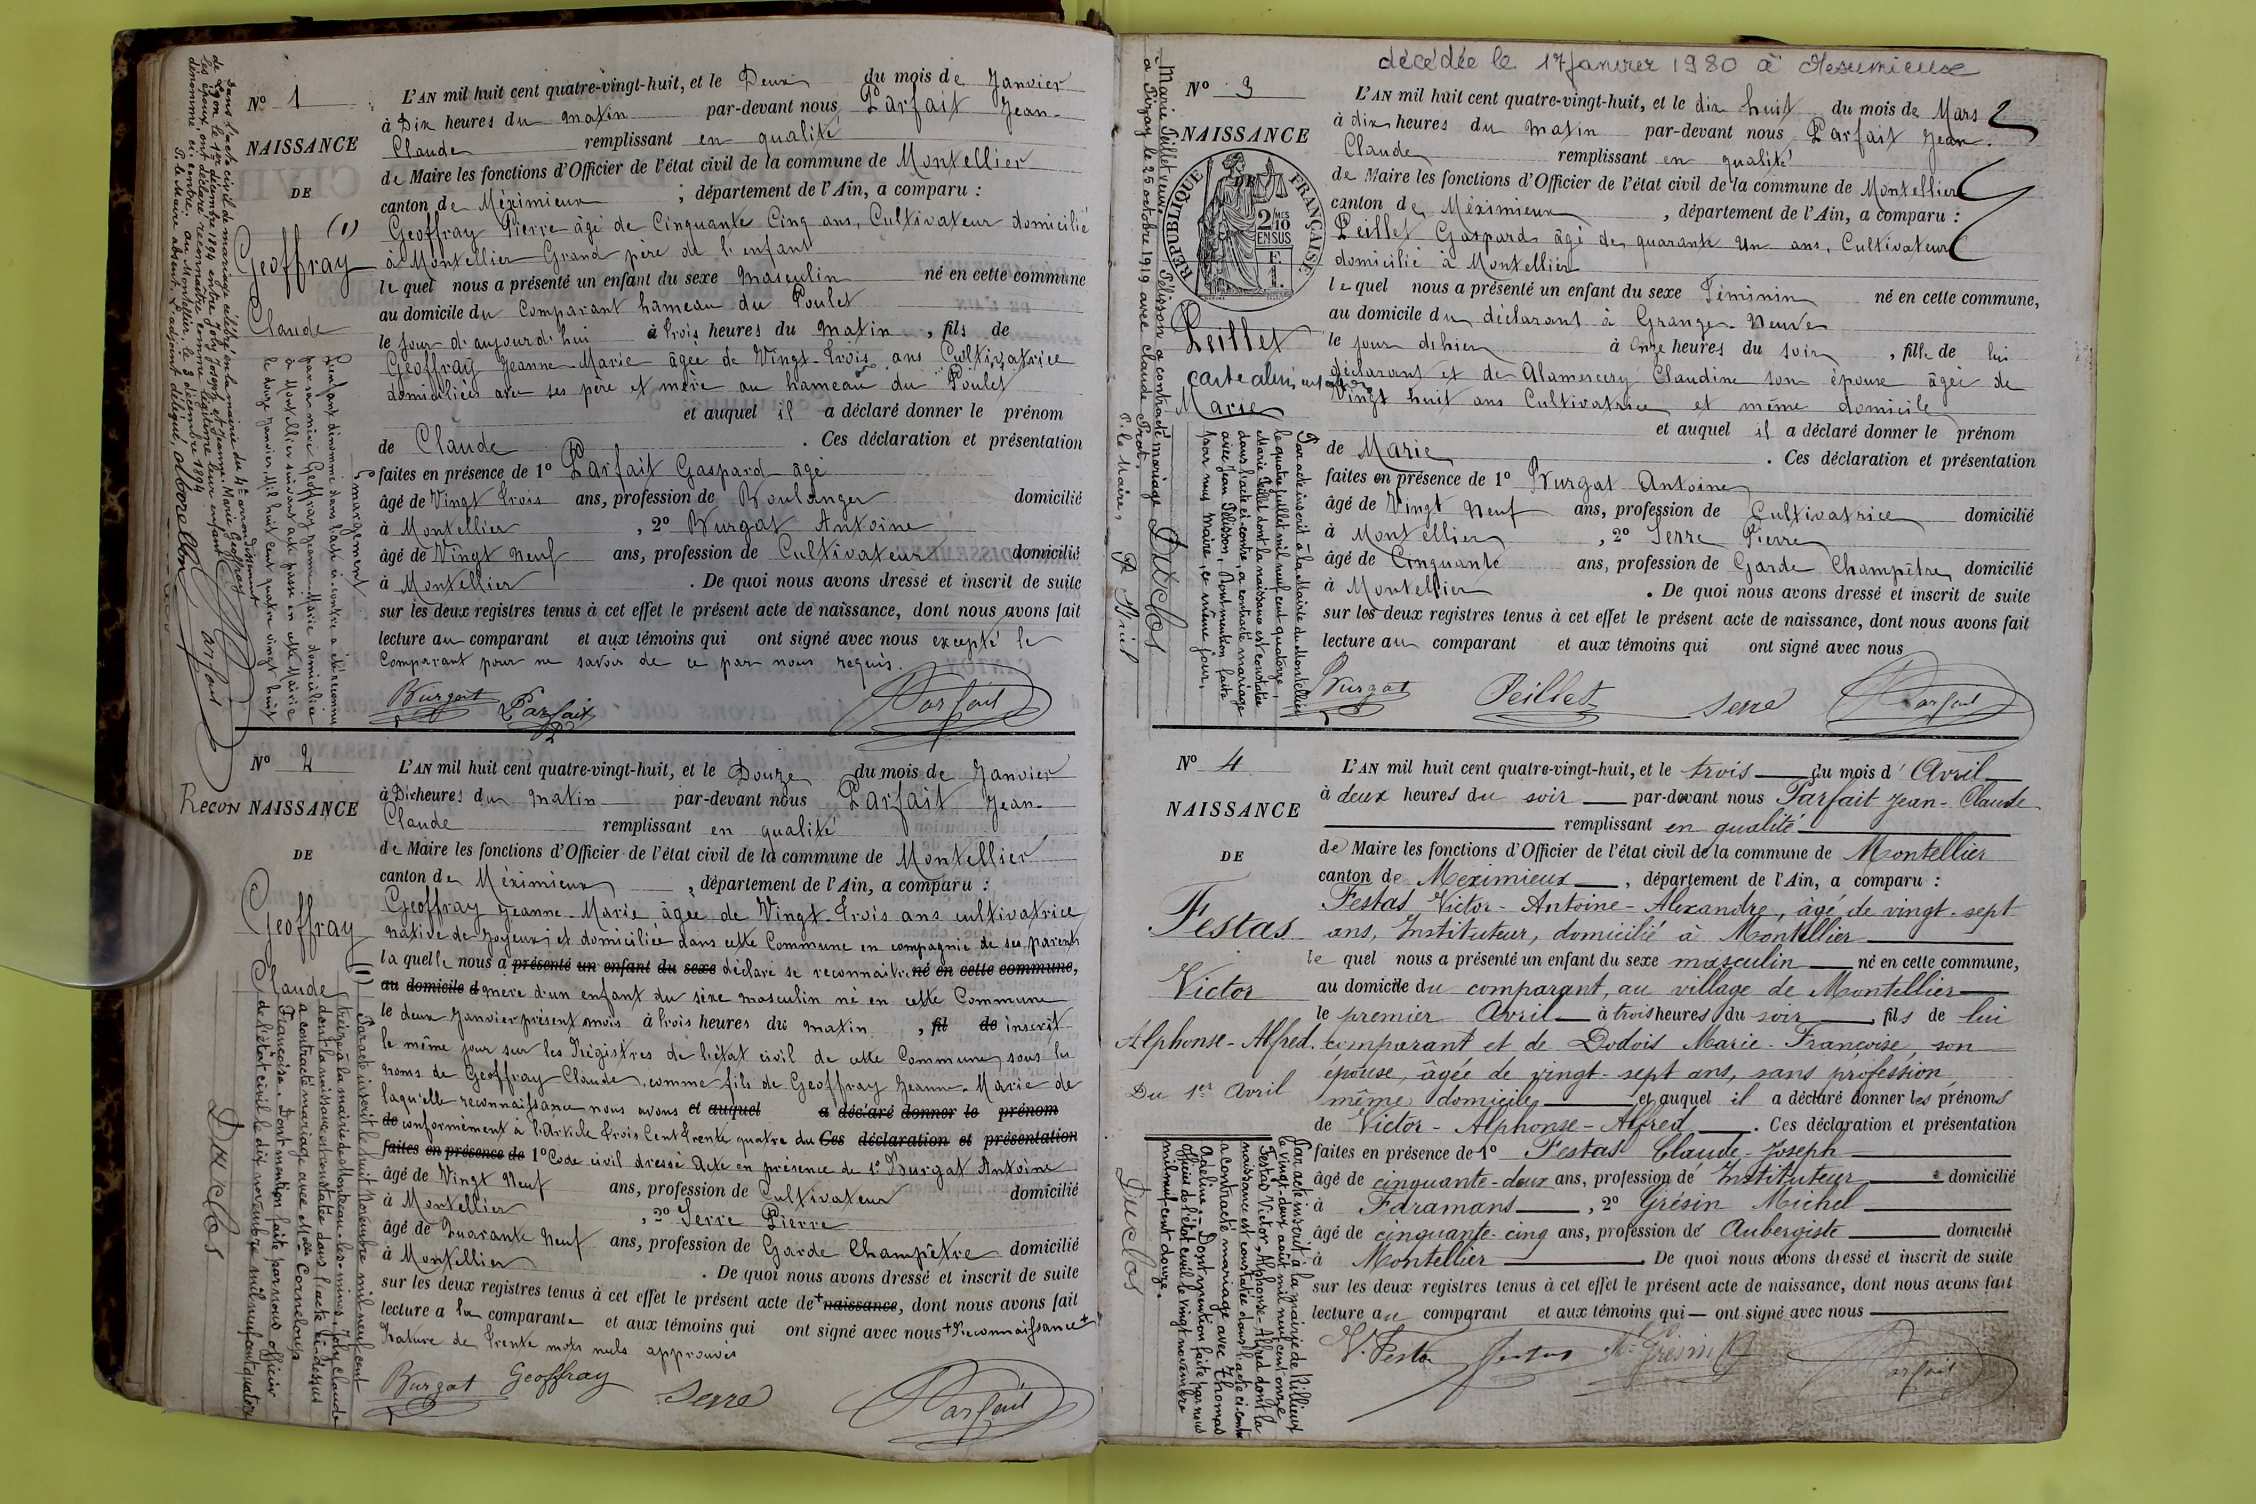 Nº 1
NAISSANCE
DE
(1)
Geoffray
Claude
L'AN mil huit cent quatre-vingt-huit, et le Deux du mois de Janvier
à Dix heures du matin par-devant nous Parfait Jean-
Claude remplissant en qualité
de Maire les fonctions d'Officier de l'état civil de la commune de Montellier
canton de Méximieux ; département de l'Ain, a comparu :
Geoffray Pierre âgé de Cinquante Cinq ans, Cultivateur domicilié
à Montellier Grand père de l'enfant
lequel nous a présenté un enfant du sexe masculin né en cette commune
au domicile du Comparant hameau du Poulet
le jour d'aujourd'hui à trois heures du matin, fils de
Geoffray Jeanne-Marie âgée de Vingt-trois ans Cultivatrice
domiciliées avec ses père et mère au hameau du Poulet
et auquel il a déclaré donner le prénom
de Claude. Ces déclaration et présentation
faites en présence de 1º Parfait Gaspard âgé
âgé de Vingt trois ans, profession de Boulanger domicilié
à Montellier, 2º Burgat Antoine
âgé de Vingt neuf ans, profession de Cultivateur domicilié
à Montellier. De quoi nous avons dressé et inscrit de suite
sur les deux registres tenus à cet effet le présent acte de naissance, dont nous avons fait
lecture au comparant et aux témoins qui ont signé avec nous excepté le
Comparant pour ne savoir de ce par nous requis.
Burgat Parfait Parfait
Dans l'acte civil de mariage célébré en la mairie du 4e arrondissement
de Lyon le 1er décembre 1894 entre Joly Joseph et Jeanne Marie Geoffray
les époux ont déclaré reconnaître comme légitime leur enfant
dénommé ci-contre. au Montellier, le 3 décembre 1894
P. le Maire absent, L'adjoint délégué,
L'enfant dénommé dans l'acte ci-contre a été reconnu
par sa mère Geoffray Jeanne-Marie domiciliée
à Montellier suivant acte passé en cette Mairie
le douze Janvier, Mil huit cent quatre vingt huit
Parfait
Nº 2
Recon NAISSANCE
DE
Geoffray
Claude
(1)
L'AN mil huit cent quatre-vingt-huit, et le Douze du mois de Janvier
à Dix heures du matin par-devant nous Parfait Jean-
Claude remplissant en qualité
de Maire les fonctions d'Officier de l'état civil de la commune de Montellier
canton de Méximieux, département de l'Ain, a comparu :
Geoffray Jeanne-Marie âgée de Vingt-trois ans cultivatrice
native de Joyeux et domiciliée dans cette Commune en compagnie de ses parents
laquelle nous a présenté un enfant du sexe déclaré se reconnaître né en cette commune,
au domicile d mère d'un enfant du sexe masculin né en cette Commune
le deux Janvier présent mois à trois heures du matin, fil de inscrit
le même jour sur les Régistres de l'état civil de cette Commune, sous les
noms de Geoffray Claude, comme fils de Geoffray Jeanne-Marie de
laquelle reconnaissance nous avons et auquel a déclaré donner le prénom
de conformément à l'Article trois Cent trente quatre du Ces déclaration et présentation
faites en présence de 1º Code civil dressé Acte en présence de 1º Burgat Antoine
âgé de Vingt neuf ans, profession de Cultivateur domicilié
à Montellier, 2º Serre Pierre
âgé de Quarante neuf ans, profession de Garde Champêtre domicilié
à Montellier. De quoi nous avons dressé et inscrit de suite
sur les deux registres tenus à cet effet le présent acte de + naissance, dont nous avons fait
lecture a la comparante et aux témoins qui ont signé avec nous + Reconnaissance +
Rature de trente mots nuls approuvés
Burgat Geoffray Serre Parfait
Par acte inscrit le huit Novembre mil neuf cent
treize à la mairie de Montceau-les-mines, Joly Claude
dont la naissance est constatée dans l'acte ci-dessus
a contracté mariage avec Melle Corneloup
Françoise. Dont mention faite par nous officier
de l'état civil le dix novembre mil neuf cent quatorze
Duclos
décédée le 17 janvier 1980 à Meximieux
Nº 3
NAISSANCE
DE
RÉPUBLIQUE FRANÇAISE
2/10 MES EN SUS
F
1.
Peillet
carte alim
Marie
L'AN mil huit cent quatre-vingt-huit, et le dix huit du mois de Mars
à dix heures du matin par-devant nous Parfait Jean-
Claude remplissant en qualité
de Maire les fonctions d'Officier de l'état civil de la commune de Montellier
canton de Méximieux, département de l'Ain, a comparu :
Peillet Gaspard âgé de quarante un ans, Cultivateur
domicilié à Montellier
lequel nous a présenté un enfant du sexe féminin né en cette commune,
au domicile du déclarant à Grange-Neuve
le jour d'hier à Onze heures du soir, fille de lui
déclarant et de Alamercery Claudine son épouse âgée de
Vingt huit ans Cultivatrice et même domicile
et auquel il a déclaré donner le prénom
de Marie. Ces déclaration et présentation
faites en présence de 1º Burgat Antoine
âgé de Vingt neuf ans, profession de Cultivatrice domicilié
à Montellier, 2º Serre Pierre
âgé de Cinquante ans, profession de Garde Champêtre domicilié
à Montellier. De quoi nous avons dressé et inscrit de suite
sur les deux registres tenus à cet effet le présent acte de naissance, dont nous avons fait
lecture au comparant et aux témoins qui ont signé avec nous
Burgat Peillet Serre Parfait
Marie Peillet veuve Pélisson a contracté mariage
à Pizay le 25 octobre 1919 avec Claude Prost.
P. le Maire,
Par acte inscrit à la Mairie du Montellier
le quatre juillet mil neuf cent quatorze,
Marie Peillet dont la naissance est constatée
dans l'acte ci-contre, a contracté mariage
avec Jean Pélisson, Dont mention faite
par nous Maire, ce même jour.
Duclos
Nº 4
NAISSANCE
DE
Festas
Victor
Alphonse-Alfred.
Du 1er Avril
L'AN mil huit cent quatre-vingt-huit, et le trois du mois d'Avril
à deux heures du soir par-devant nous Parfait Jean-Claude
remplissant en qualité
de Maire les fonctions d'Officier de l'état civil de la commune de Montellier
canton de Meximieux, département de l'Ain, a comparu :
Festas Victor-Antoine-Alexandre, âgé de vingt-sept
ans, Instituteur, domicilié à Montellier
le quel nous a présenté un enfant du sexe masculin né en cette commune,
au domicile du comparant, au village de Montellier
le premier Avril à trois heures du soir, fils de lui
comparant et de Dodois Marie-Françoise, son
épouse, âgée de vingt-sept ans, sans profession,
même domicile et auquel il a déclaré donner les prénoms
de Victor-Alphonse-Alfred. Ces déclaration et présentation
faites en présence de 1º Festas Claude-Joseph
âgé de cinquante-deux ans, profession de Instituteur domicilié
à Faramans, 2º Grésin Michel
âgé de cinquante-cinq ans, profession de Aubergiste domicilié
à Montellier. De quoi nous avons dressé et inscrit de suite
sur les deux registres tenus à cet effet le présent acte de naissance, dont nous avons fait
lecture au comparant et aux témoins qui ont signé avec nous
V. Festas Festas M. Grésin Parfait
Par acte inscrit à la mairie de Rillieux
le vingt-deux août mil neuf cent onze
Festas Victor, Alphonse-Alfred dont la
naissance est constatée dans l'acte ci-contre
a contracté mariage avec Thomas
Adeline. Dont mention faite par nous
officier de l'état civil le vingt novembre
mil neuf cent douze.
Duclos